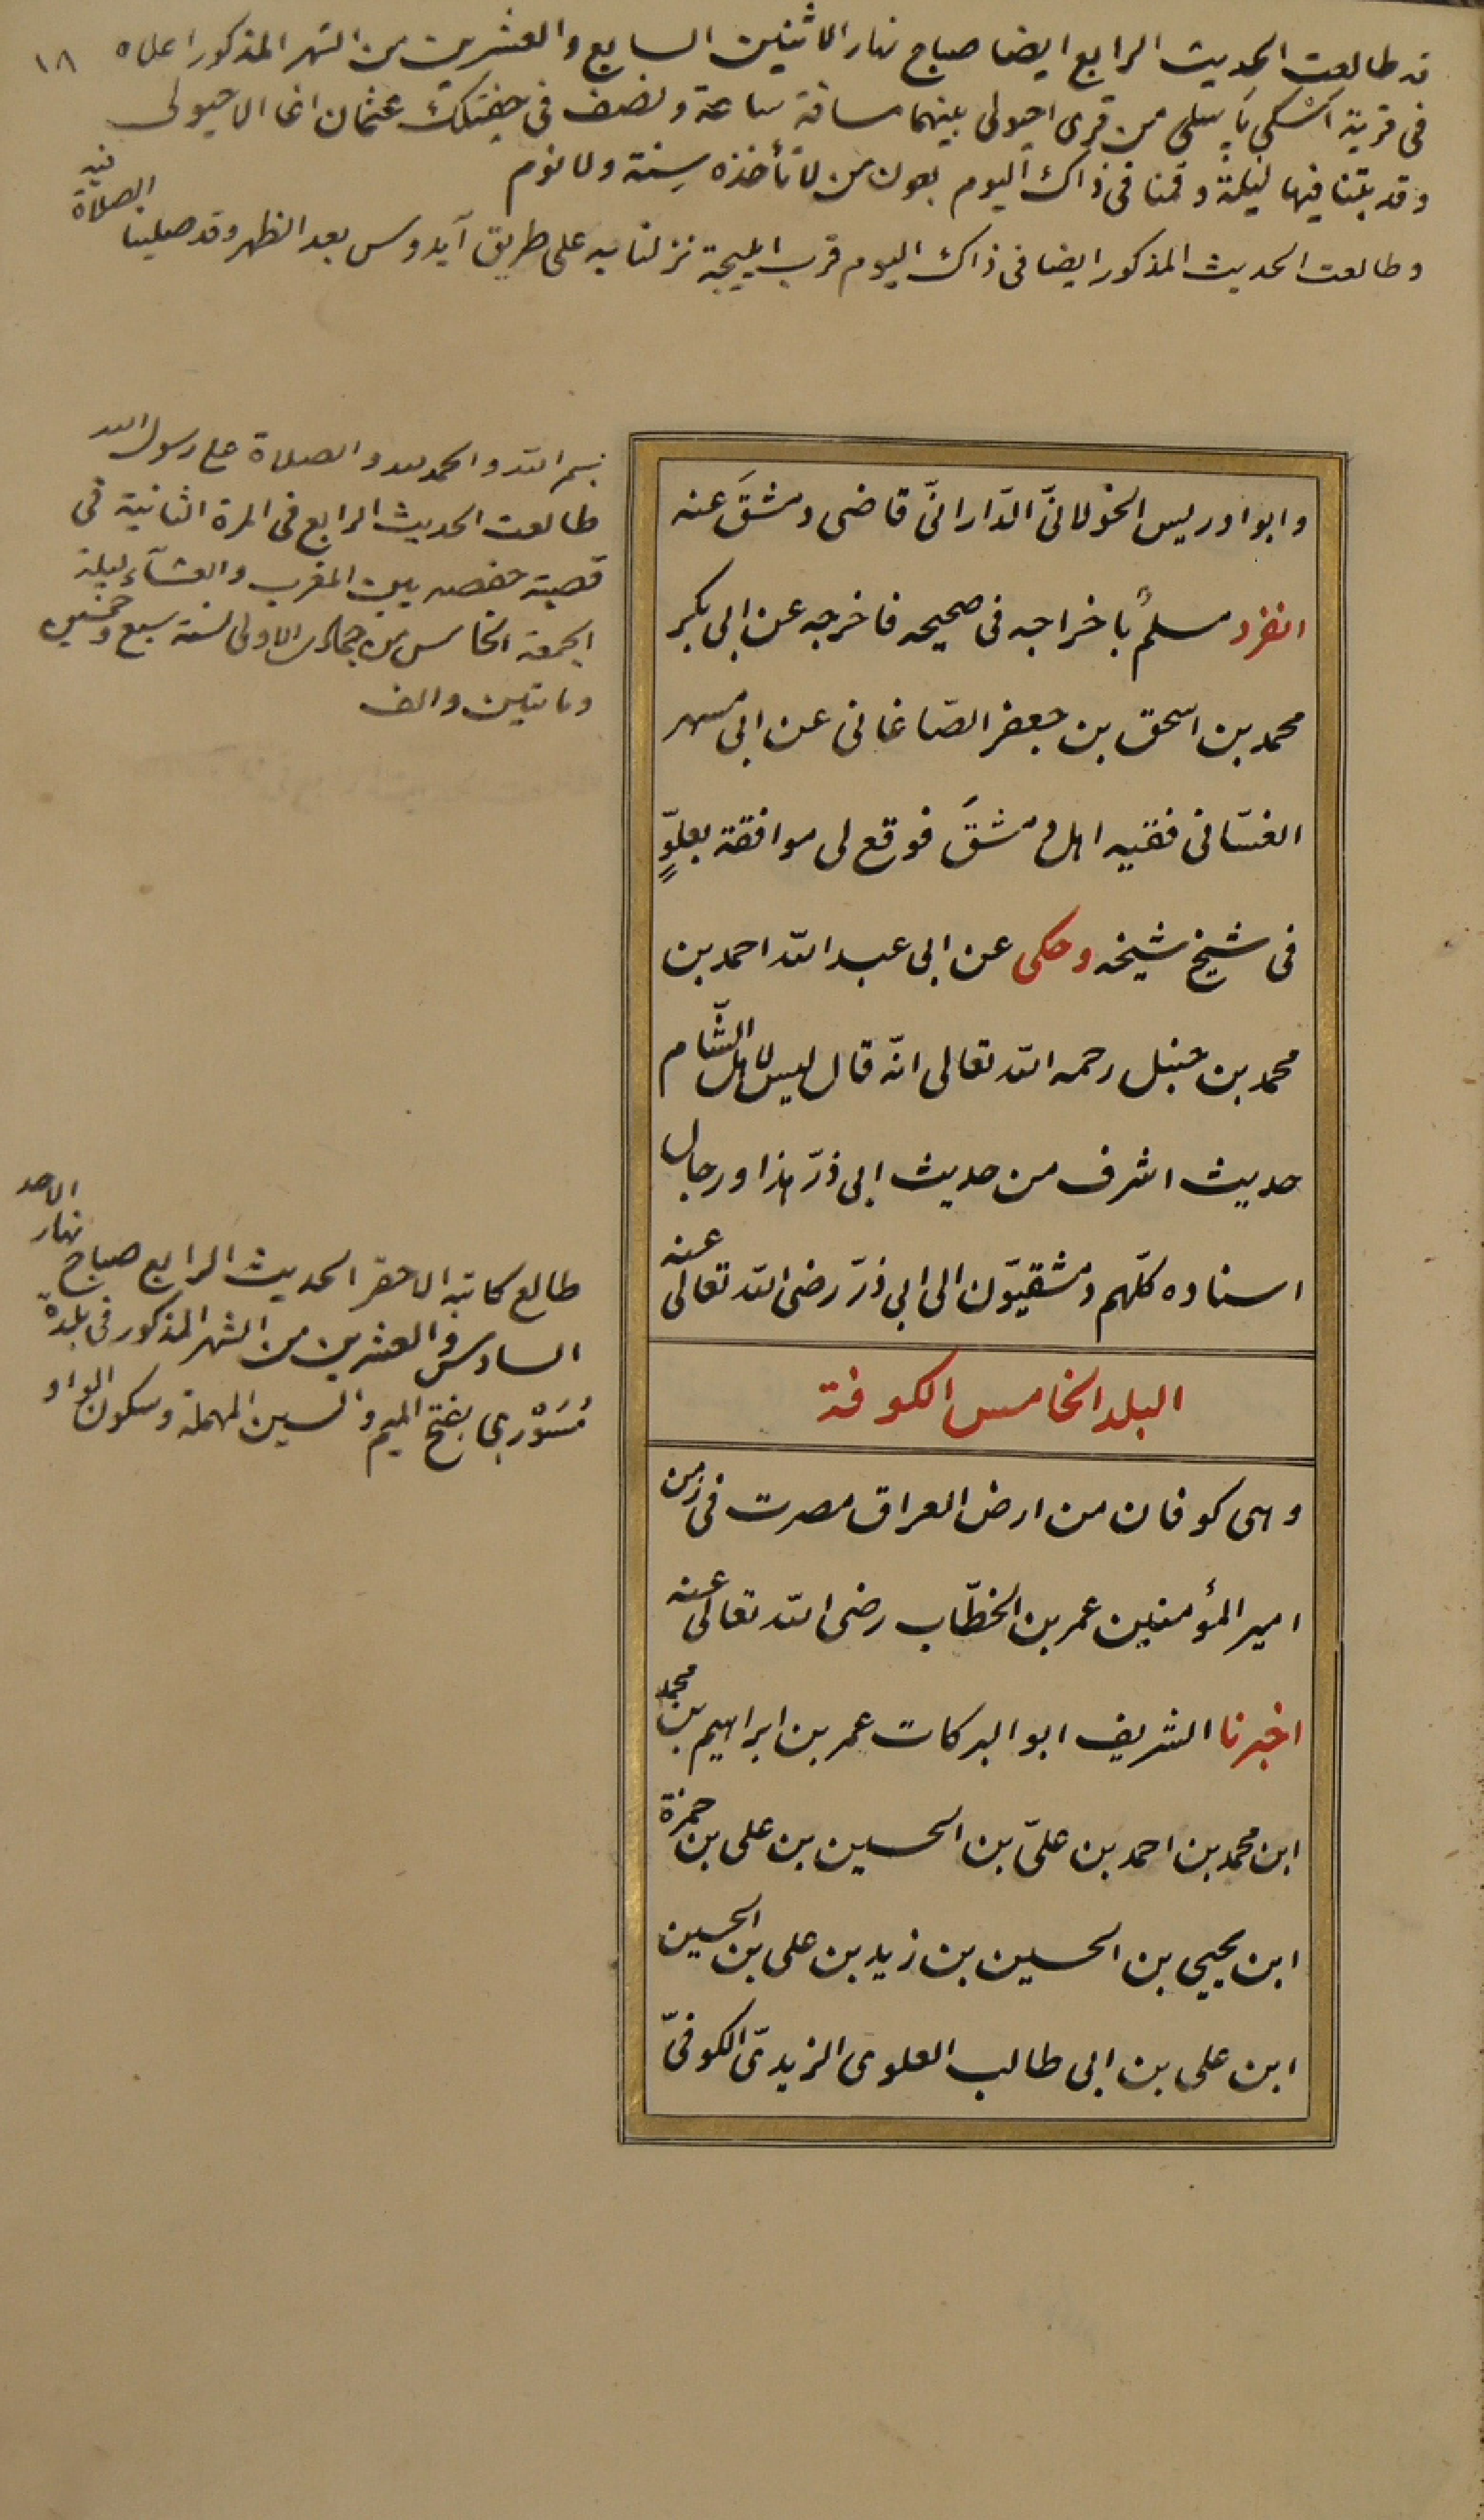 ١٨
قد طالعت الحديث الرابع ايضا صباح نهار الاثنين السابع والعشرين من الشهر المذكور اعلاه
في قرية اسكى يايلى من قرى اجيولى بينهما مسافة ساعة ونصف في جفتلك عثمان اغا الاجيولى
وقد بتنا فيها ليلة وقمنا في ذاك اليوم بعون من لا تأخذه سِنة ولا نوم
وطالعت الحديث المذكور ايضا في ذاك اليوم قرب نزلنا به على طريق آيدوس بعد الظهر وقد صلينا الصلاة فيه
بسم الله والحمد لله والصلاة على رسول الله
طالعت الحديث الرابع في المرة الثانية في
قصبة حفصه بين المغرب والعشاء ليلة
الجمعة الخامس من جمادى الاولى لسنة سبع وخمسين
ومائتين والف
وابو ادريس الخولانىّ الدّارانىّ قاضى دمشقَ عنه
انفرد مسلمٌ باخراجه فى صحيحه فاخرجه عن ابى بكر
محمد بن اسحق بن جعفر الصّاغانى عن ابى مسهر
الغسّانى فقيه اهل دمشقَ فوقع لى موافقة بعلوٍّ
فى شيخ شيخه وحكى عن ابى عبد الله احمد بن
محمد بن حنبل رحمه الله تعالى انّه قال ليس لاهل الشّام
حديث اشرف من حديث ابى ذرّ هذا ورجال
اسناده كلّهم دمشقيّون الى ابى ذرّ رضى الله تعالى عنه
طالع كاتبه الاحقر الحديث الرابع صباح نهار الاحد
السادس والعشرين من الشهر المذكور في بلدة
مَسَوْرى بفتح الميم والسين المهملة وسكون الواو
البلد الخامس الكوفة
وهى كوفان من ارض العراق مصرت فى زمن
امير المؤمنين عمر بن الخطّاب رضى الله تعالى عنه
اخبرنا الشريف ابو البركات عمر بن ابراهيم بن محمد
ابن محمد بن احمد بن علىّ بن الحسين بن على بن حمزة
ابن يحيى بن الحسين بن زيد بن على بن الحسين
ابن على بن ابى طالب العلوى الزيدىّ الكوفىّ